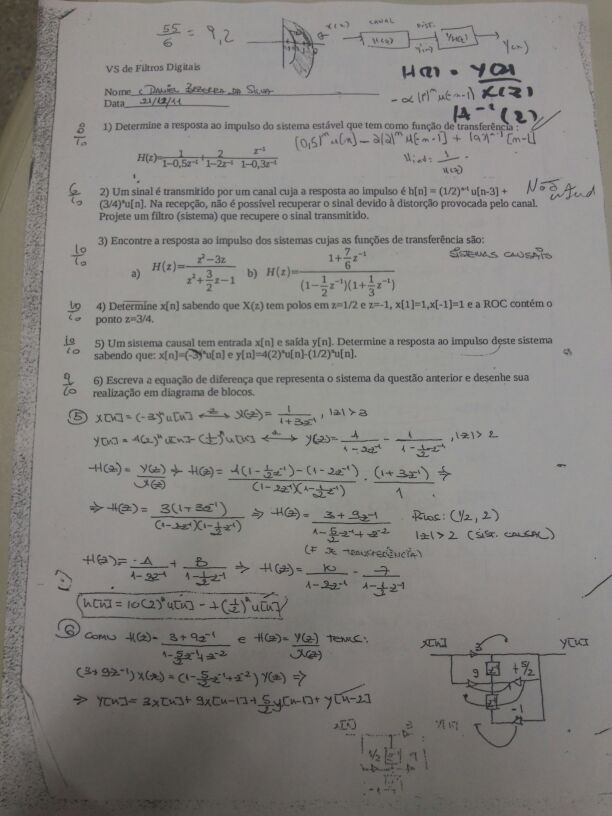 55/6 = 9,2
x(z) CANAL DIST.
H(z) 1/H(z) Y(n)
VS de Filtros Digitais
H(z) = Y(z)/X(z)
Nome : Daniel Bezerra da Silva
Data 21/12/11
-α(r)ⁿ u[-n-1]
H⁻¹(z)
8/10 1) Determine a resposta ao impulso do sistema estável que tem como função de transferência :
(0,5)ⁿ u[n] - 2(2)ⁿ u[-n-1] + (0,3)ⁿ⁻¹ [n-1]
H(z)= 1/(1-0,5z⁻¹) + 2/(1-2z⁻¹) z⁻¹/(1-0,3z⁻¹)
1/H(z)
2) Um sinal é transmitido por um canal cuja a resposta ao impulso é h[n] = (1/2)ⁿ⁻¹ u[n-3] +
(3/4)ⁿu[n]. Na recepção, não é possível recuperar o sinal devido à distorção provocada pelo canal.
Projete um filtro (sistema) que recupere o sinal transmitido.
10/10 3) Encontre a resposta ao impulso dos sistemas cujas as funções de transferência são:
SISTEMAS CAUSAIS
a) H(z)= (z²-3z)/(z²+3/2 z-1) b) H(z)= (1+7/6 z⁻¹)/((1-1/2 z⁻¹)(1+1/3 z⁻¹))
10/10 4) Determine x[n] sabendo que X(z) tem polos em z=1/2 e z=-1, x[1]=1,x[-1]=1 e a ROC contém o
ponto z=3/4.
10/10 5) Um sistema causal tem entrada x[n] e saída y[n]. Determine a resposta ao impulso deste sistema
sabendo que: x[n]=(-3)ⁿu[n] e y[n]=4(2)ⁿu[n]-(1/2)ⁿu[n].
9/10 6) Escreva a equação de diferença que representa o sistema da questão anterior e desenhe sua
realização em diagrama de blocos.
5 X[n] = (-3)ⁿ u[n] ↔ X(z) = 1/(1+3z⁻¹) , |z| > 3
Y[n] = 4(2)ⁿ u[n] - (1/2)ⁿ u[n] ↔ Y(z) = 4/(1-2z⁻¹) - 1/(1-1/2 z⁻¹) , |z| > 2
H(z) = Y(z)/X(z) ⇒ H(z) = (4(1-1/2 z⁻¹) - (1-2z⁻¹))/((1-2z⁻¹)(1-1/2 z⁻¹)) · (1+3z⁻¹)/1 ⇒
⇒ H(z) = 3(1+3z⁻¹)/((1-2z⁻¹)(1-1/2 z⁻¹)) ⇒ H(z) = (3+9z⁻¹)/(1-5/2 z⁻¹+z⁻²) Polos: (1/2, 2)
|z| > 2 (SIST. CAUSAL)
(F DE TRANSFERÊNCIA)
H(z) = A/(1-2z⁻¹) + B/(1-1/2 z⁻¹) ⇒ H(z) = 10/(1-2z⁻¹) - 7/(1-1/2 z⁻¹)
h[n] = 10(2)ⁿ u[n] - 7(1/2)ⁿ u[n]
6 COMO H(z) = (3+9z⁻¹)/(1-5/2 z⁻¹+z⁻²) E H(z) = Y(z)/X(z) TEMOS:
(3+9z⁻¹) X(z) = (1-5/2 z⁻¹+z⁻²) Y(z) ⇒
⇒ Y[n] = 3x[n] + 9x[n-1] + 5/2 y[n-1] + y[n-2]
X[n] 3 Y[n]
9 z⁻¹ +5/2
z⁻¹
-1
3
5/2 z⁻¹ 9